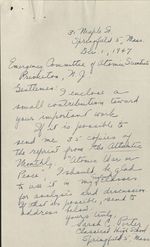 31 Maple St.
Springfield 5, Mass.
Dec 1, 1947
Emergency Committee of Atomic Scientists
Princeton, N.J.
Gentlemen: I enclose a
small contribution toward
your important work.
If it is possible to
send me 35 copies of
the reprint from the Atlantic
Monthly, "Atomic War or
Peace", I should be glad
to use it in my classes
for analysis and discussion.
If that is possible, send to
address below.
Yours truly,
Sarah C. Porter
Classical High School
Springfield 5, Mass.